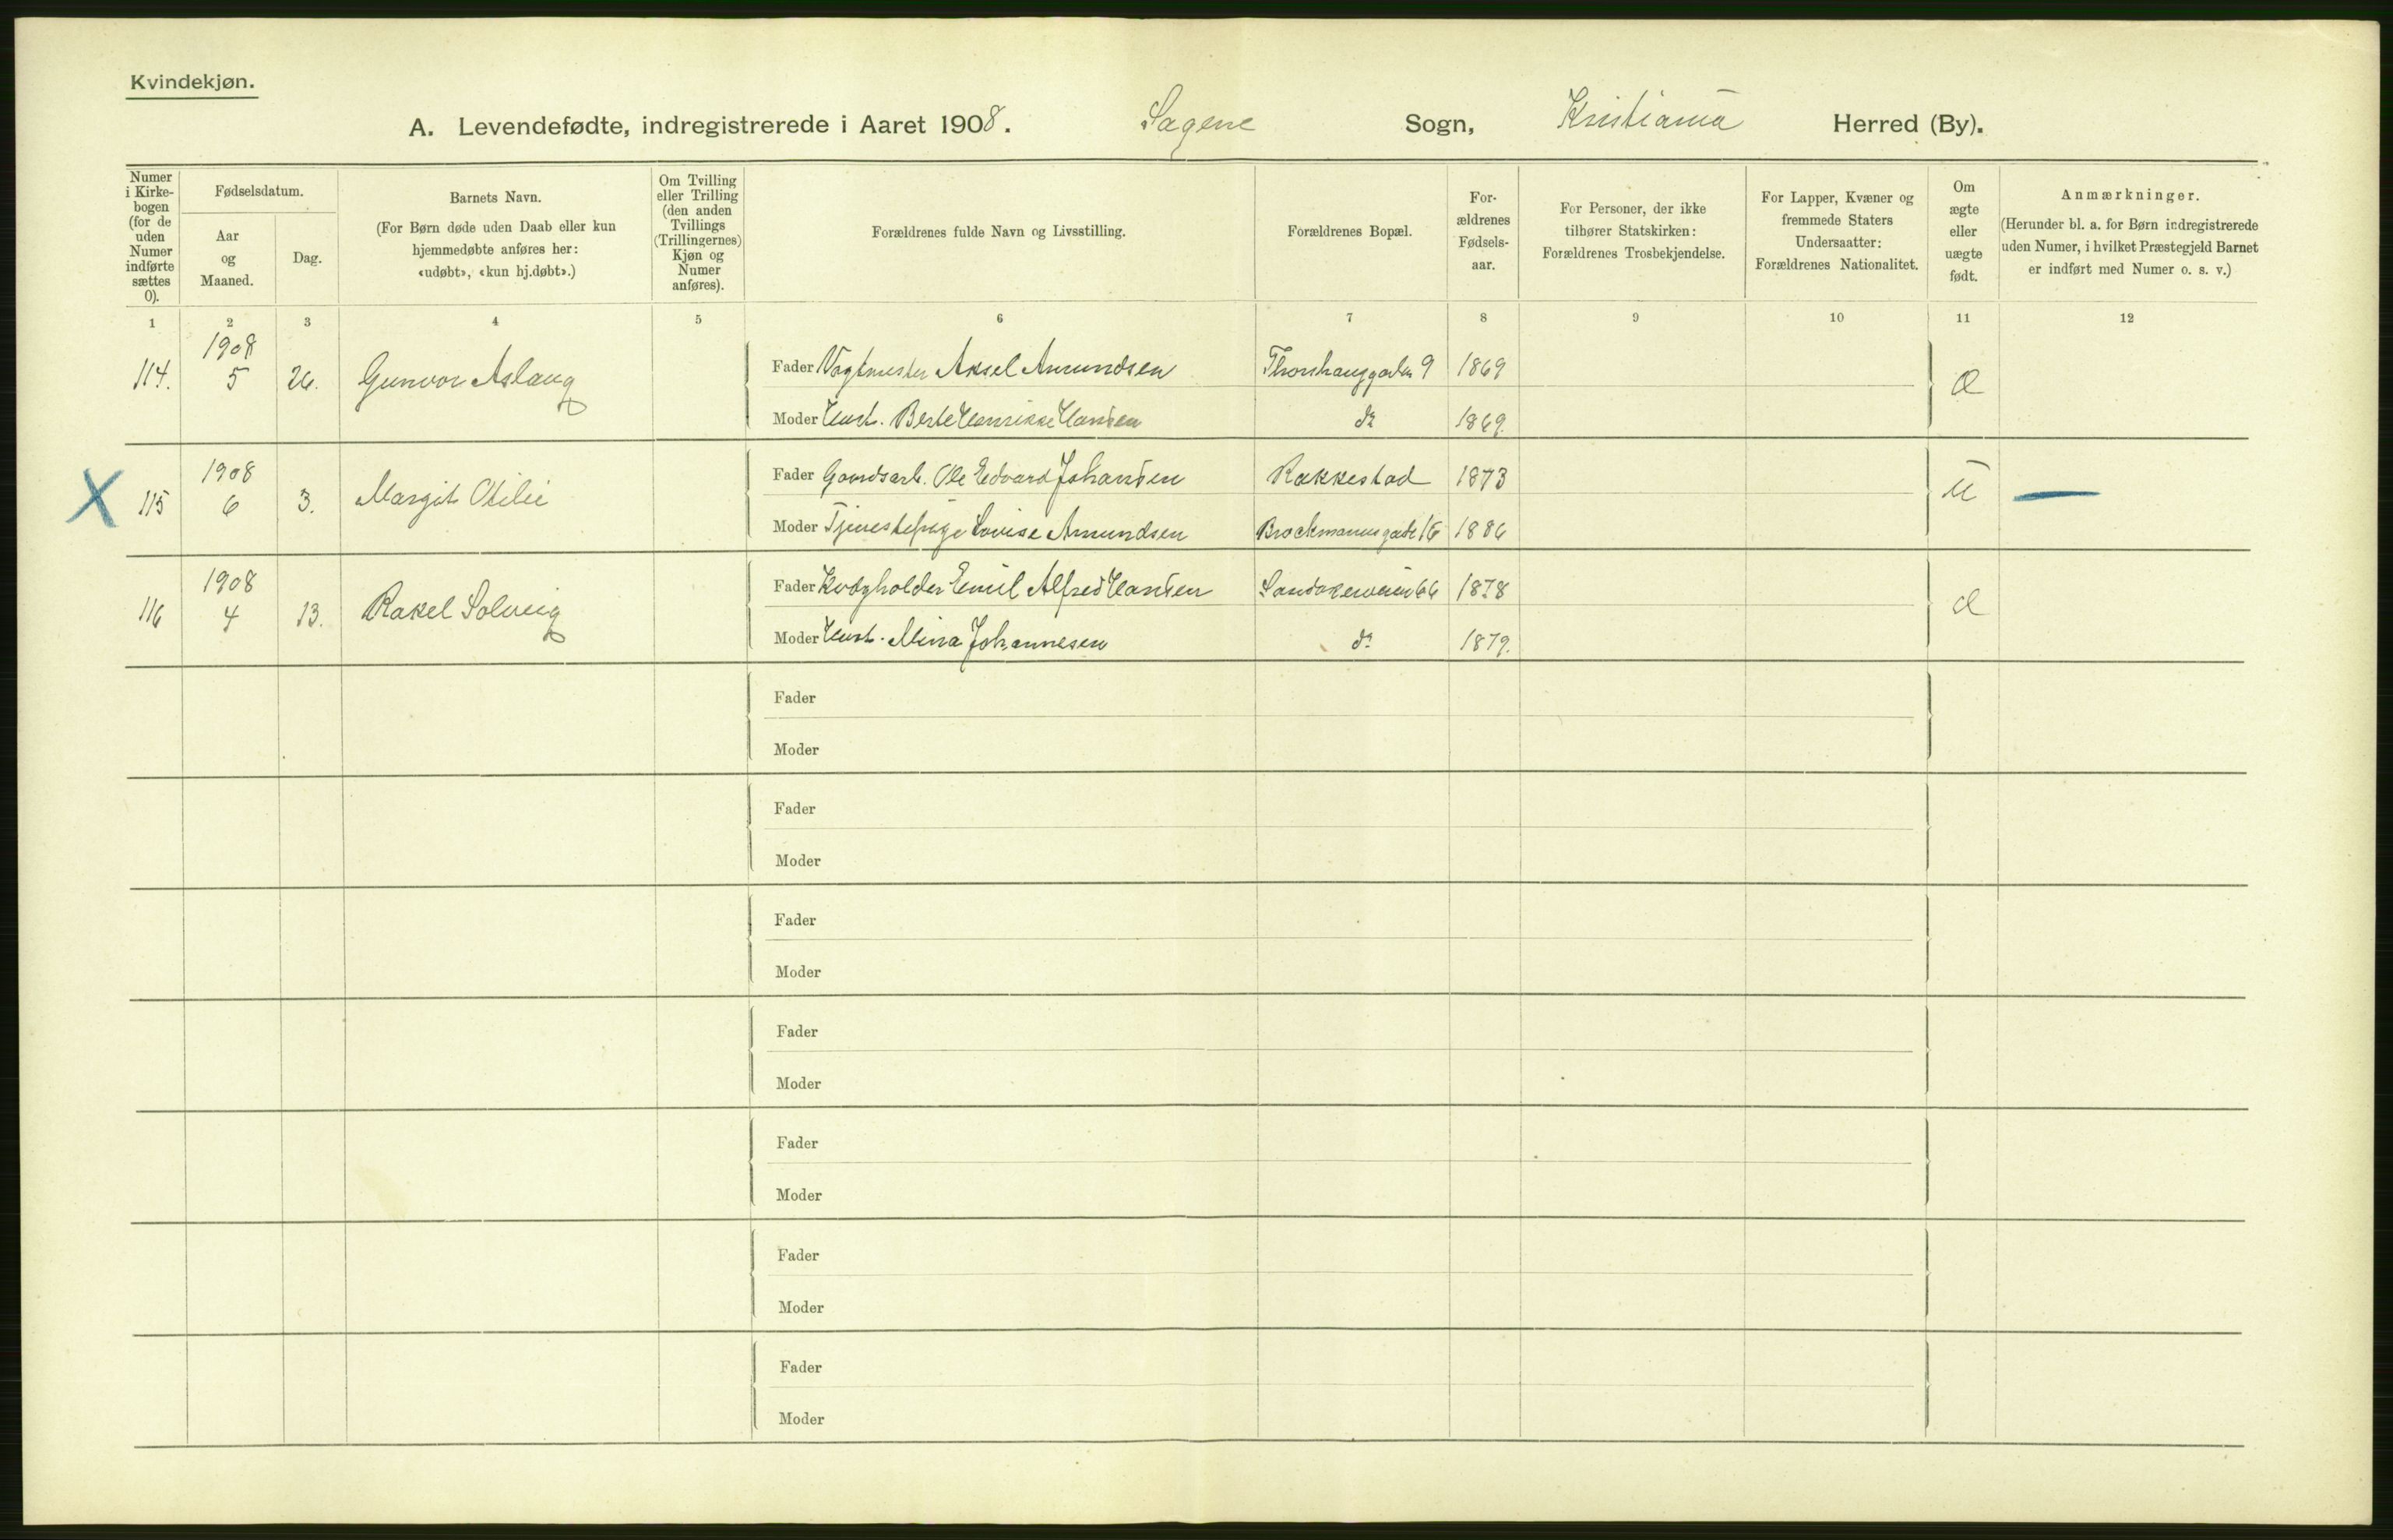 Kvindekjøn.
A. Levendefødte, indregistrerede i Aaret 1908. Sagene Sogn, Kristiania Herred (By).
Numer i Kirkebogen (for de uden Numer indførte sættes 0).
Fødselsdatum.
Aar og Maaned.
Dag.
Barnets Navn.
(For Børn døde uden Daab eller kun hjemmedøbte anføres her: «udøbt», «kun hj.døbt».)
Om Tvilling eller Trilling (den anden Tvillings (Trillingernes) Kjøn og Numer anføres).
Forældrenes fulde Navn og Livsstilling.
Forældrenes Bopæl.
Forældrenes Fødselsaar.
For Personer, der ikke tilhører Statskirken: Forældrenes Trosbekjendelse.
For Lapper, Kvæner og fremmede Staters Undersaatter: Forældrenes Nationalitet.
Om ægte eller uægte født.
Anmærkninger.
(Herunder bl. a. for Børn indregistrerede uden Numer, i hvilket Præstegjeld Barnet er indført med Numer o. s. v.)
1 2 3 4 5 6 7 8 9 10 11 12
114. 1908 5 26. Gunvor Aslaug
Fader Vagtmester Aksel Amundsen Thorshauggaden 9 1869
Moder Hust. Berte Henrikke Hansen do 1869.
æ
X 115 1908 6 3. Margit Otilie
Fader Gaardsarb. Ole Edvard Johansen Rakkestad 1873
Moder Tjenestepige Lovise Amundsen Brockmannsgade 15 1886
u —
116 1908 4 13. Rakel Solveig
Fader Kvægholder Emil Alfred Hansen Sandakerveien 66 1878
Moder Hust. Mina Johannesen do 1879.
æ
Fader
Moder
Fader
Moder
Fader
Moder
Fader
Moder
Fader
Moder
Fader
Moder
Fader
Moder